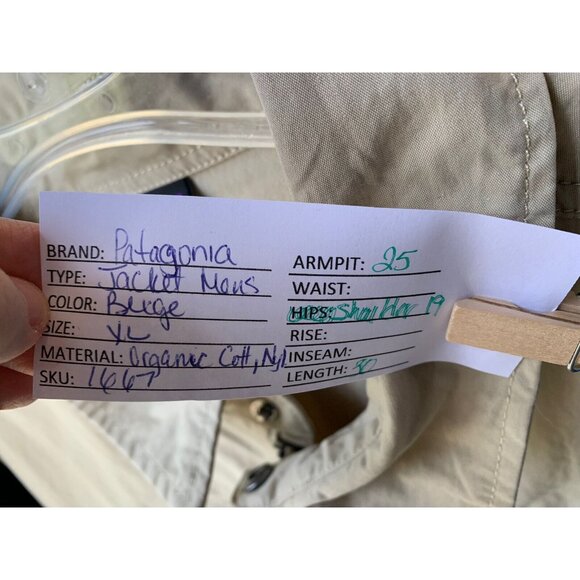 BRAND: Patagonia
TYPE: Jacket Mens
COLOR: Beige
SIZE: XL
MATERIAL: Organic Cott, Nyl
SKU: 1667
ARMPIT: 25
WAIST:
HIPS: Shoulder 19
RISE:
INSEAM:
LENGTH: 30